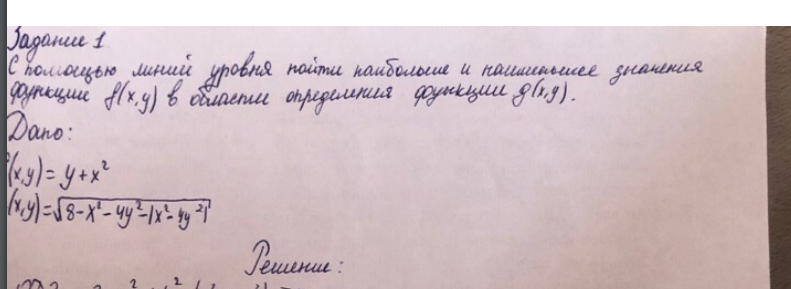 Задание 1
С помощью линий уровня найти наибольшее и наименьшее значения
функции f(x,y) в области определения функции g(x,y).
Дано:
(x,y) = y + x²
(x,y) = √8-x²-4y²-|x²-4y²|
Решение: